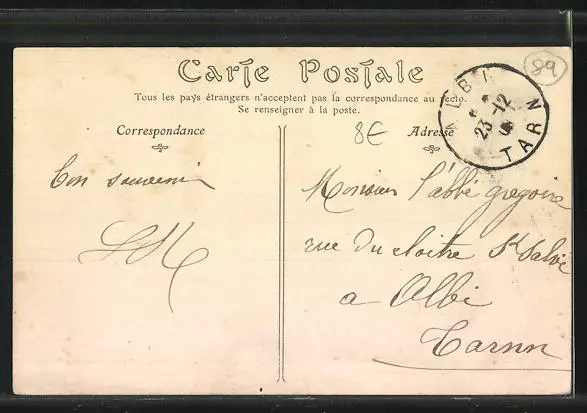 Carte Postale
Tous les pays étrangers n'acceptent pas la correspondance au recto.
Se renseigner à la poste.
Correspondance
Adresse
8€
89
ALBI
23-12
TARN
Bon souvenir
Monsieur l'abbé gregoire
rue du cloitre St Salvi
a Albi
Tarnn